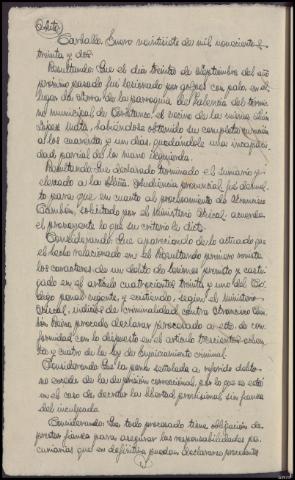 Auto
Carballo. Enero veintisiete de mil novecientos
treinta y dos
Resultando: Que el dia treinta de Septiembre del año
próximo pasado fué lesionado por golpes con palo, en el
lugar del Outeiro de la parroquia de Valencia del termi-
no municipal de Coristanco, el vecino de las mismas
habiéndose obtenido su completa curación
a los cuarenta y un dias, quedándole una incapaci-
dad parcial de la mano izquierda.
Resultando: Que declarado terminado el sumario y
elevado a la Iltma. Audiencia provincial, fué devuel-
to para que en cuanto al procesamiento de Francisco
solicitado por el Ministerio Fiscal, acuerde
el proveyente lo que su criterio le dicte.
Considerando: Que apareciendo de lo actuado que
el hecho relacionado en el Resultando primero reviste
los caracteres de un delito de lesiones previsto y casti-
gado en el artículo cuatrocientos treinta y uno del Có-
digo penal vigente, y existiendo, según el Ministerio
Fiscal, indicios de criminalidad contra Francisco
procede declarar procesado a este de con-
formidad con lo dispuesto en el artículo trescientos ochen-
ta y cuatro de la ley de Enjuiciamiento criminal.
Considerando: Que la pena señalada a referido delito
no excede de la de prisión correccional, por lo que se está
en el caso de decretar la libertad provisional sin fianza
del inculpado.
Considerando: Que todo procesado tiene obligación de
prestar fianza para asegurar las responsabilidades pe-
cuniarias que en definitiva puedan declararse procedentes